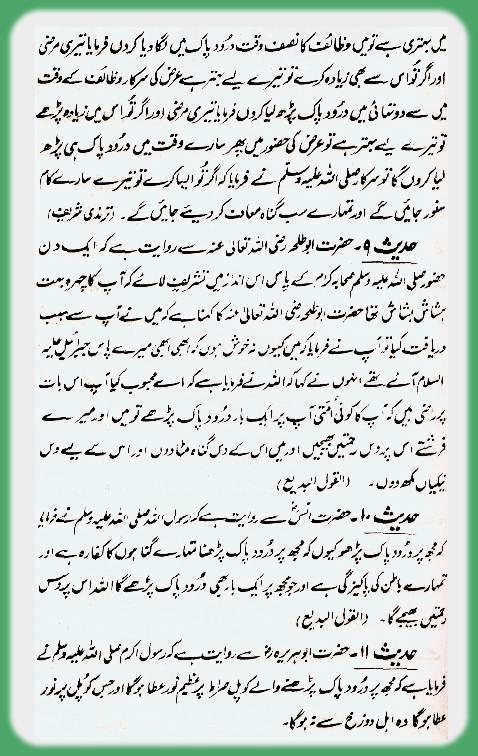 میں بہتری ہے تو میں وظائف کا نصف وقت درُود پاک میں لگا دیا کروں فرمایا تیری مرضی
اور اگر تُو اس سے بھی زیادہ کرے تو تیرے لیے بہتر ہے عرض کی سرکار وظائف کے وقت
میں سے دو تہائی میں درُود پاک پڑھ لیا کروں فرمایا تیری مرضی اور اگر تُو اس میں زیادہ پڑھے
تو تیرے لیے بہتر ہے تو عرض کی حضور میں پھر سارے وقت میں درُود پاک ہی پڑھ
لیا کروں گا تو سرکار صلی اللہ علیہ وسلم نے فرمایا کہ اگر تُو ایسا کرے تو تیرے سارے کام
سنور جائیں گے اور تمہارے سب گناہ معاف کر دیئے جائیں گے۔ (ترمذی شریف)
حدیث ۹۔ حضرت ابوطلحہ رضی اللہ تعالیٰ عنہ سے روایت ہے کہ ایک دن
حضور صلی اللہ علیہ وسلم صحابہ کرام کے پاس اس انداز میں تشریف لائے کہ آپ کا چہرہ بہت
ہشاش بشاش تھا حضرت ابوطلحہ رضی اللہ تعالیٰ عنہ کا کہنا ہے کہ میں نے آپ سے سبب
دریافت کیا تو آپ نے فرمایا کہ میں کیوں نہ خوش ہوں کہ ابھی ابھی میرے پاس جبرائیل علیہ
السلام آئے تھے انہوں نے کہا کہ اللہ نے فرمایا ہے کہ اے محبوب کیا آپ اس بات
پر راضی ہیں کہ آپ کا کوئی اُمتی آپ پر ایک بار درُود پاک پڑھے تو میں اور میرے
فرشتے اس پر دس رحمتیں بھیجیں اور میں اس کے دس گناہ مٹا دوں اور اس کے لیے دس
نیکیاں لکھ دوں۔ (القول البدیع)
حدیث ۱۰۔ حضرت انسؓ سے روایت ہے کہ رسول اللہ صلی اللہ علیہ وسلم نے فرمایا
کہ مجھ پر درُود پاک پڑھو کیوں کہ مجھ پر درُود پاک پڑھنا تمہارے گناہوں کا کفارہ ہے اور
تمہارے باطن کی پاکیزگی ہے اور جو مجھ پر ایک بار بھی درُود پاک پڑھے گا اللہ اس پر دس
رحمتیں بھیجے گا۔ (القول البدیع)
حدیث ۱۱۔ حضرت ابوہریرہؓ سے روایت ہے کہ رسول اکرم صلی اللہ علیہ وسلم نے
فرمایا ہے کہ مجھ پر درُود پاک پڑھنے والے کو پل صراط پر عظیم نور عطا ہوگا اور جس کو پل پر نور
عطا ہوگا وہ اہل دوزخ سے نہ ہوگا۔